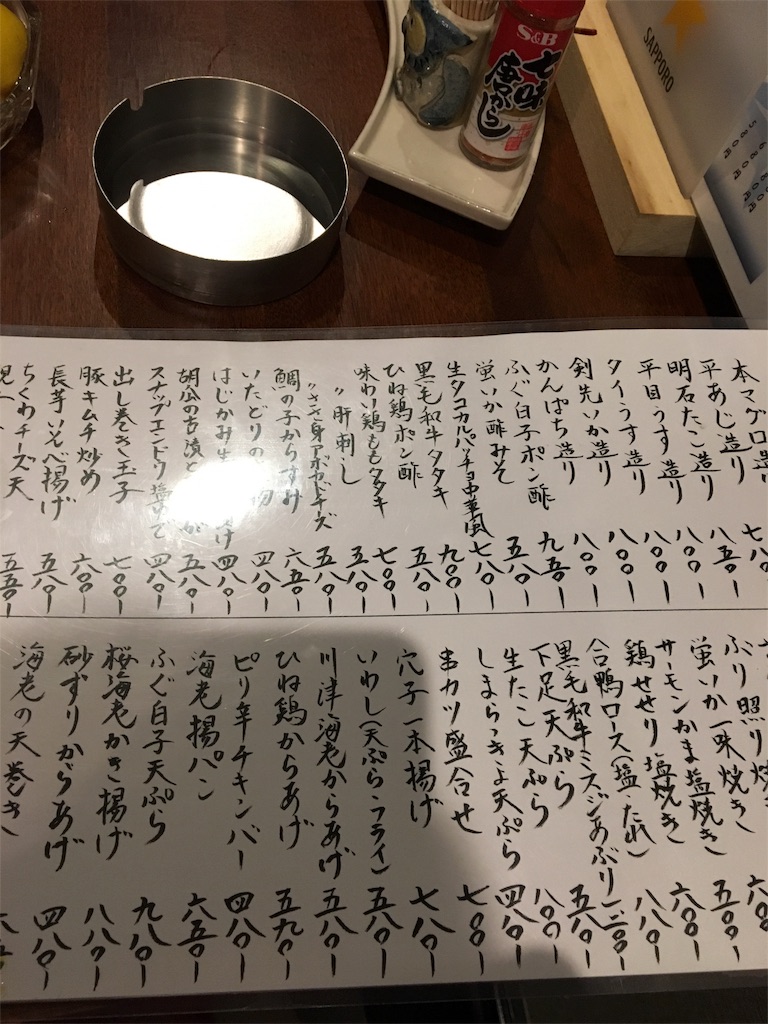 S&B
七味
唐がらし
SAPPORO
580円
680円
680円
本マグロ造り
平あじ造り 八五〇ー
明石たこ造り 八〇〇ー
平目うす造り 八〇〇ー
タイうす造り 八〇〇ー
剣先いか造り 八〇〇ー
かんぱち造り 九五〇ー
ふぐ白子ポン酢 五八〇ー
蛍いか酢みそ 七八〇ー
生タコカルパッチョ中華風 九〇〇ー
黒毛和牛タタキ 五八〇ー
ひね鶏ポン酢 七〇〇ー
味わい鶏ももタタキ 五八〇ー
〃 肝刺し 五八〇ー
〃ささ身アボカドチーズ 六五〇ー
鯛の子からすみ 四八〇ー
いたどりの 物 四八〇ー
はじかみ生 け 五八〇ー
胡瓜の古漬と 四八〇ー
スナップエンドリ塩ゆで 七〇〇ー
出し巻き玉子 六〇〇ー
豚キムチ炒め 五八〇ー
長芋いそべ揚げ 五五〇ー
ちくわチーズ天
ぶり照り焼き 六
蛍いか一味焼き 五〇〇ー
サーモンかま塩焼き 六〇〇ー
鶏せせり塩焼き 八八〇ー
合鴨ロース(塩・たれ) 一二〇〇ー
黒毛和牛ミスジあぶり 五八〇ー
下足天ぷら 八〇〇ー
生たこ天ぷら 四八〇ー
しまらっきょ天ぷら 七〇〇ー
串カツ盛合せ 七八〇ー
穴子一本揚げ 五八〇ー
いわし(天ぷら・フライ) 五八〇ー
川津海老からあげ 五九〇ー
ひね鶏からあげ 四八〇ー
ピリ辛チキンバー 六五〇ー
海老揚パン 九八〇ー
ふぐ白子天ぷら 八八〇ー
桜海老かき揚げ 四八〇ー
砂ずりからあげ
海老の天巻き